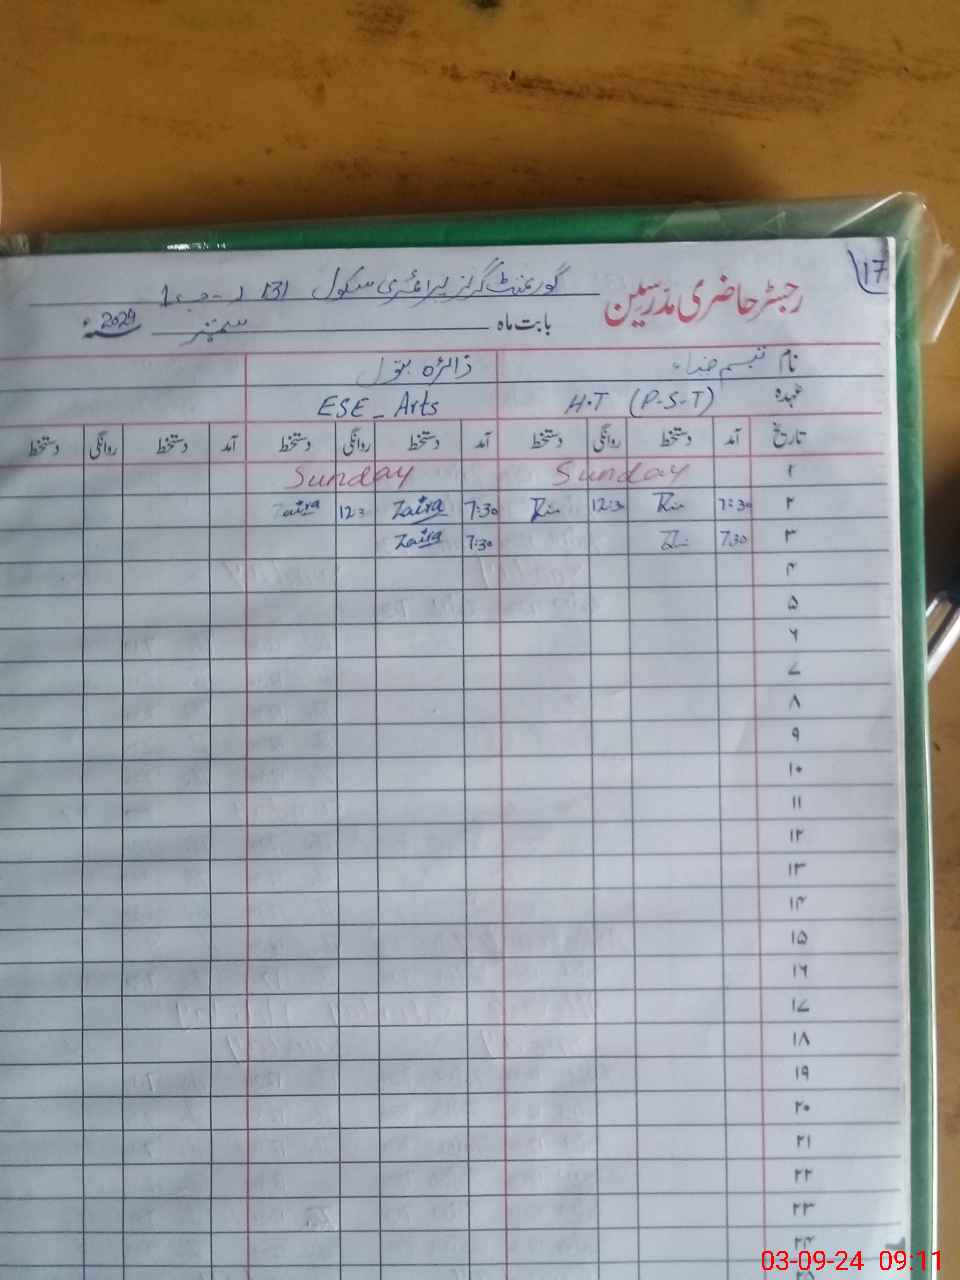 17
رجسٹر حاضری مدرسین گورنمنٹ گرلز پرائمری سکول 131 ر-ب-1
بابت ماہ ستمبر 2024ء
نام تبسم ذائرہ بتول
عہدہ H.T (P-S-T) ESE_Arts
تاریخ آمد دستخط روانگی دستخط آمد دستخط روانگی دستخط آمد دستخط روانگی دستخط
۱ Sunday Sunday
۲ 7:30 12:30 7:30 Zaira 12:3 Zaira
۳ 7:30 7:30 Zaira
۴
۵
۶
۷
۸
۹
۱۰
۱۱
۱۲
۱۳
۱۴
۱۵
۱۶
۱۷
۱۸
۱۹
۲۰
۲۱
۲۲
۲۳
۲۴
03-09-24 09:11